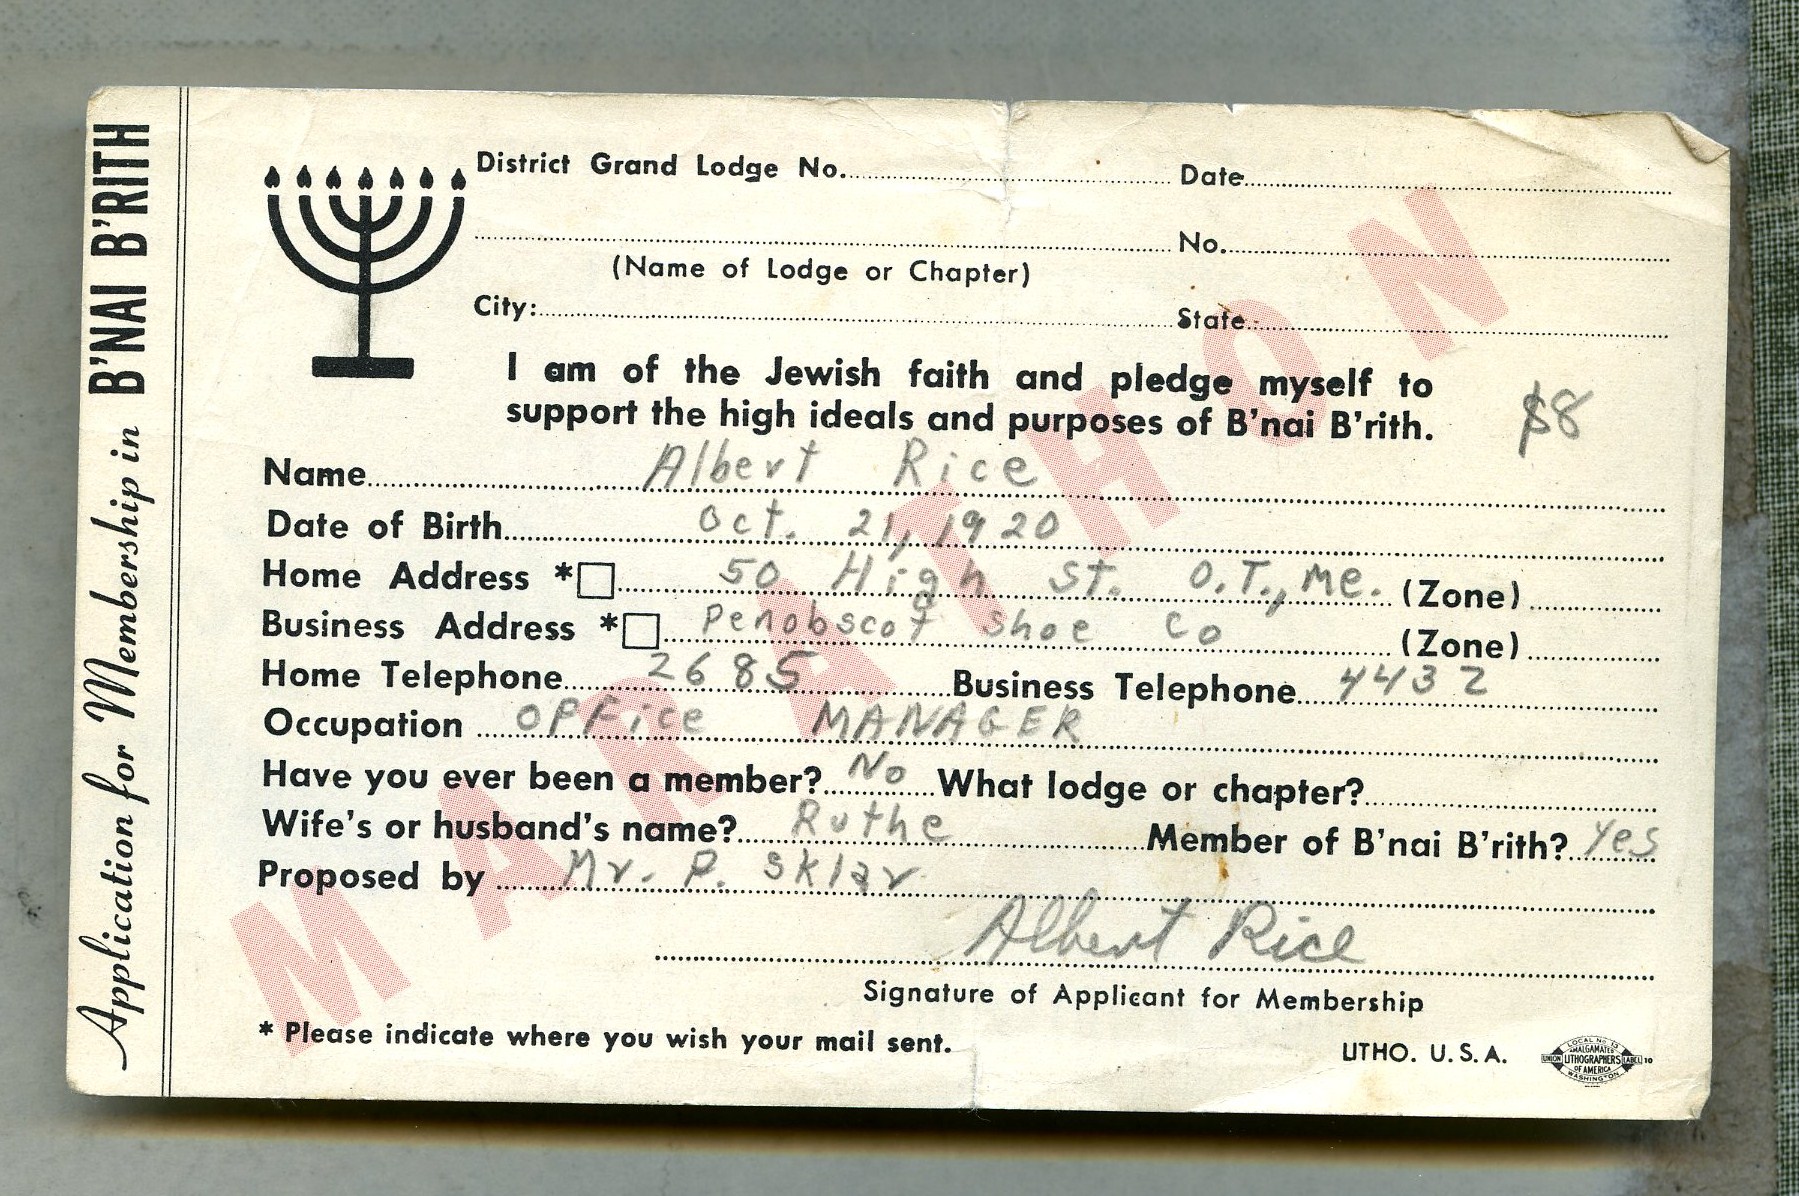 Application for Membership in B'NAI B'RITH
District Grand Lodge No. Date
No.
(Name of Lodge or Chapter)
City: State
I am of the Jewish faith and pledge myself to
support the high ideals and purposes of B'nai B'rith.
$8
Name Albert Rice
Date of Birth Oct. 21, 1920
Home Address * 50 High St. O.T., Me. (Zone)
Business Address * Penobscot Shoe Co (Zone)
Home Telephone 2685 Business Telephone 4432
Occupation OFFice MANAGER
Have you ever been a member? No What lodge or chapter?
Wife's or husband's name? Ruthe Member of B'nai B'rith? Yes
Proposed by Mr. P. Sklar
Albert Rice
Signature of Applicant for Membership
* Please indicate where you wish your mail sent.
LITHO. U.S.A.
LOCAL No 13
AMALGAMATED
UNION LITHOGRAPHERS LABEL 10
OF AMERICA
WASHINGTON
MARATHON